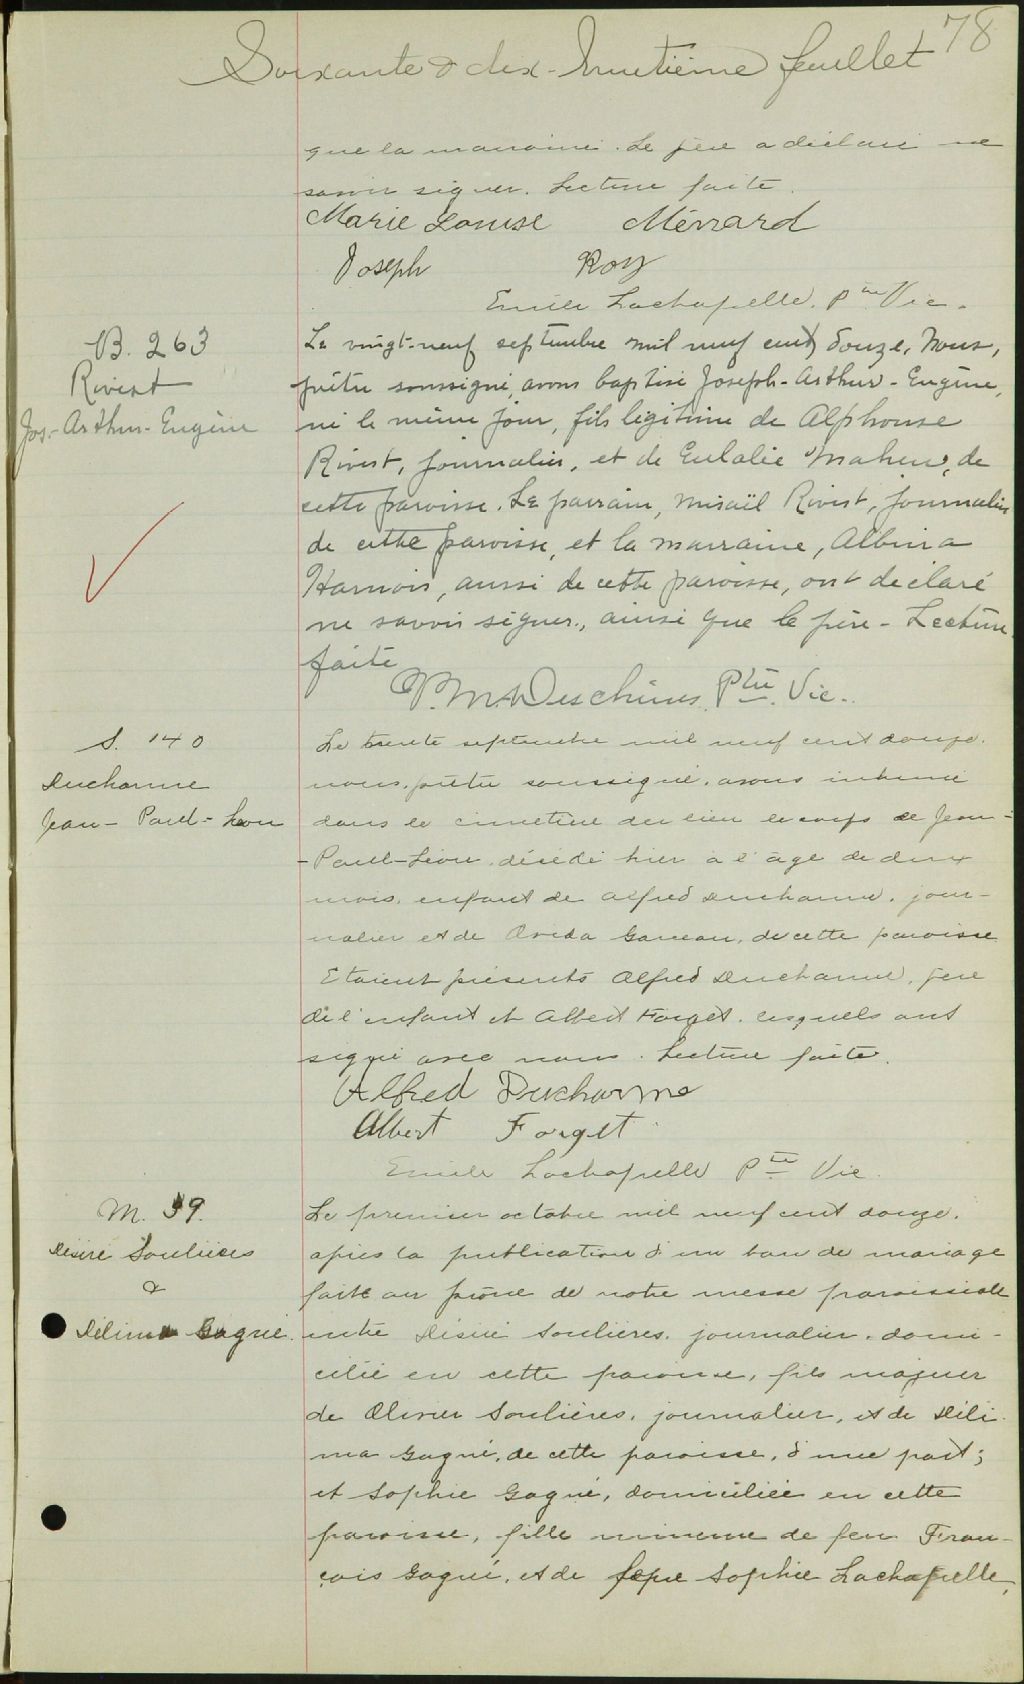 78
Soixante & dix-huitième feuillet
que la marraine. Le père a déclaré ne
savoir signer. Lecture faite.
Marie Louise Ménard
Joseph Roy
Emile Lachapelle. Ptre Vic.
B. 263
Rivest
Jos.-Arthur-Eugène
Le vingt-neuf septembre mil neuf cent douze, Nous,
prêtre soussigné, avons baptisé Joseph-Arthur-Eugène,
né le même jour, fils légitime de Alphonse
Rivest, journalier, et de Eulalie Maheu, de
cette paroisse. Le parrain, Misaïl Rivest, journalier
de cette paroisse, et la marraine, Albina
Harnois, aussi de cette paroisse, ont déclaré
ne savoir signer, ainsi que le père - Lecture
faite
Deschênes, Ptre Vic.
S. 140
Ducharme
Jean-Paul-Léon
Le trente septembre mil neuf cent douze.
nous, prêtre soussigné, avons inhumé
dans le cimetière du lieu le corps de Jean-
-Paul-Léon, décédé hier à l'âge de deux
mois, enfant de Alfred Ducharme, jour-
nalier et de Oveda Gareau, de cette paroisse
Etaient présents Alfred Ducharme, père
de l'enfant et Albert Forget, lesquels ont
signé avec nous. Lecture faite.
Alfred Ducharme
Albert Forget
Emile Lachapelle Ptre Vic.
M. 39.
Désiré Soulières
&
Délima Gagné.
Le premier octobre mil neuf cent douze,
après la publication d'un ban de mariage
faite au prône de notre messe paroissiale
entre Désiré Soulières, journalier, domi-
cilié en cette paroisse, fils majeur
de Olivier Soulières, journalier, et de Déli-
ma Gagné, de cette paroisse, d'une part;
et Sophie Gagné, domiciliée en cette
paroisse, fille mineure de feu Fran-
çois Gagné, et de Sophie Lachapelle,